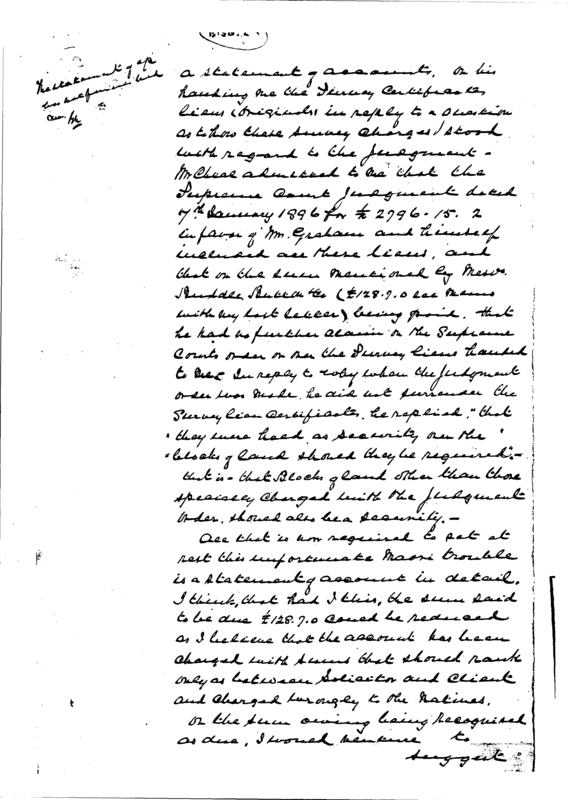 The statement of
a statement of accounts. On his
handing me the Survey Certificates
liens (Originals) in reply to a question
as to how these survey charges stood
with regard to the Judgment -
Mr Cheal admitted to me that the
Supreme Court Judgment dated
7th January 1896 for £2796.15.2
in favor of Wm. Graham and himself
included all these liens, and
that on the sum mentioned by Messrs.
(£128.7.0 see memo
with my last letter) being paid. that
he had no further claim on the Supreme
Courts order or over the Survey liens handed
to me. In reply to why when the Judgment
order was made, he did not surrender the
Survey lien Certificates, he replied, "that
"they were held as security over the"
"blocks of land should they be required". -
that is - that Blocks of land other than those
specially charged with the Judgment
order, should also be a security. -
All that is now required to set at
rest this unfortunate Maori trouble
is a statement of account in detail.
I think, that had I this, the sum said
to be due £128.7.0 could be reduced
as I believe that the account has been
charged with sums that should rank
only as between Solicitor and Client
and charged wrongly to the Natives.
On the sum owing being recognised
as due, I would venture to
suggest